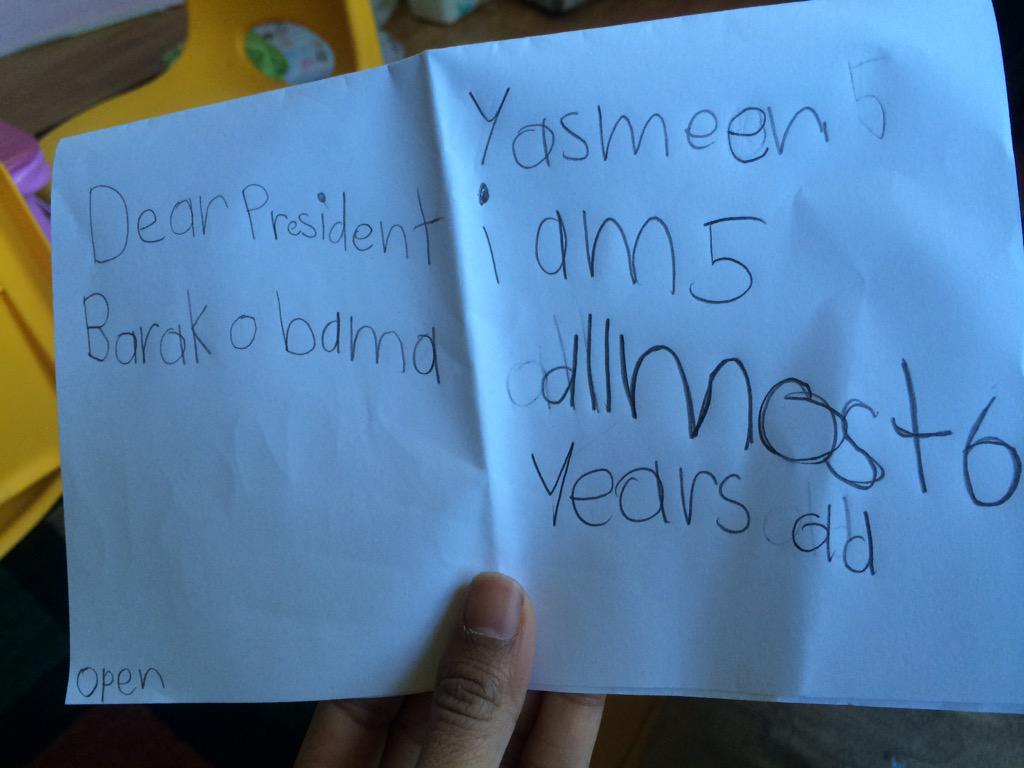 Dear President
Barak obama
open
Yasmeen 5
i am 5
allmost 6
years old